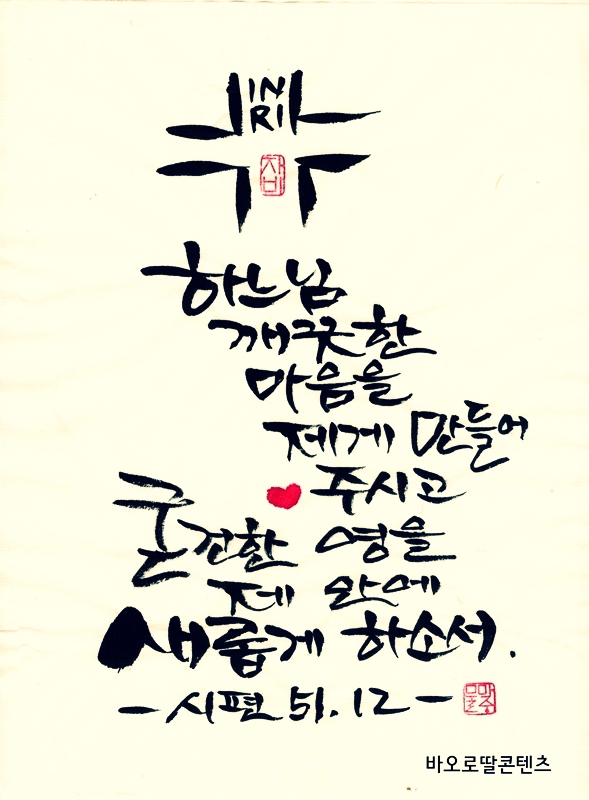 IN
RI
자비
하느님
깨끗한
마음을
제게 만들어
주시고
굳건한 영을
제 안에
새롭게 하소서.
-시편 51.12-
바오로딸콘텐츠